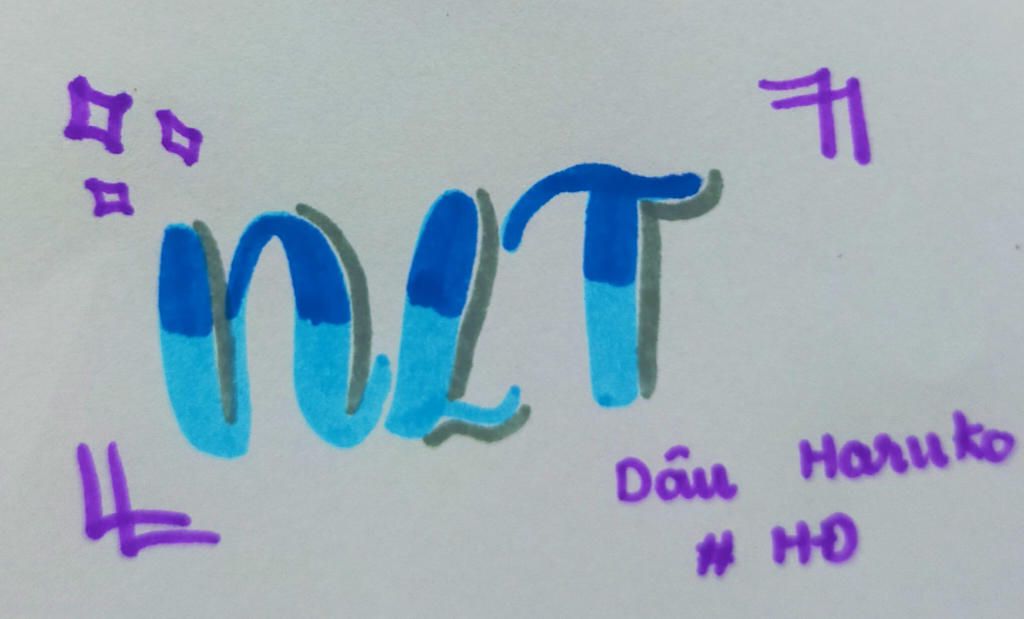 NLT
Dâu Haruko
# HĐ